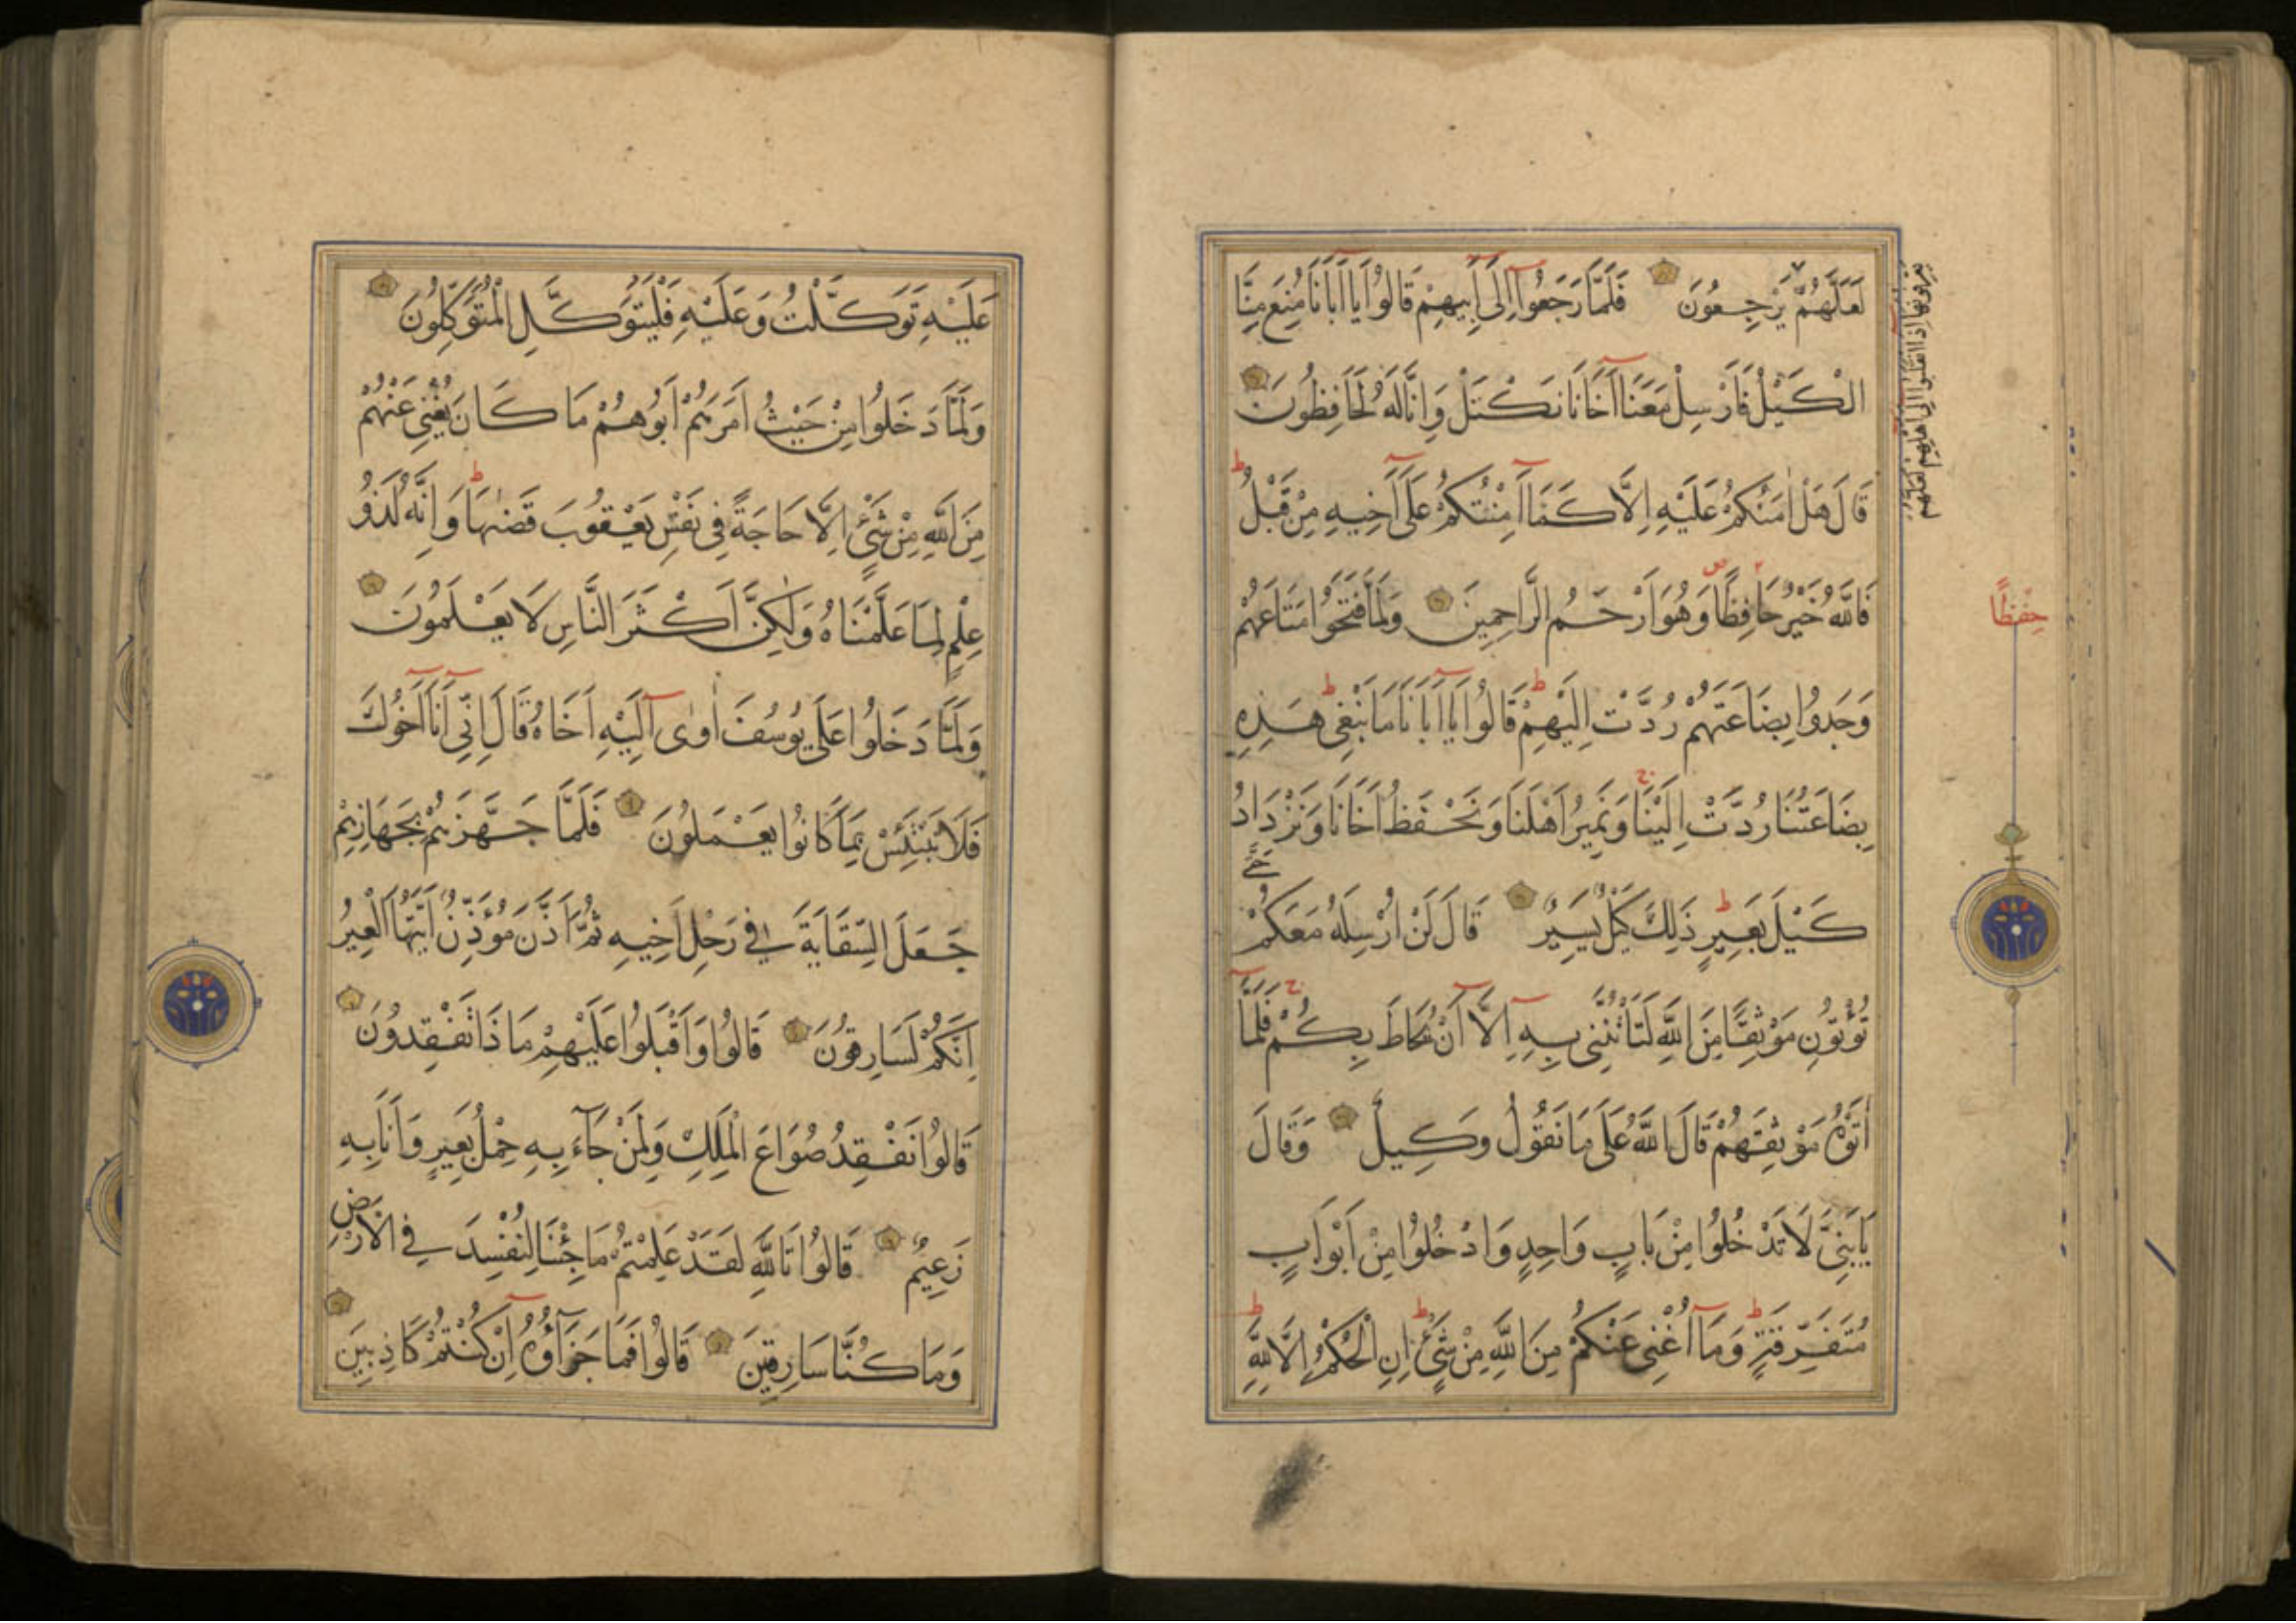 لَعَلَّهُمْ يَرْجِعُونَ فَلَمَّا رَجَعُوا إِلَى أَبِيهِمْ قَالُوا يَا أَبَانَا مُنِعَ مِنَّا
الْكَيْلُ فَأَرْسِلْ مَعَنَا أَخَانَا نَكْتَلْ وَإِنَّا لَهُ لَحَافِظُونَ
قَالَ هَلْ اٰمَنُكُمْ عَلَيْهِ إِلَّا كَمَا أَمِنْتُكُمْ عَلَى أَخِيهِ مِنْ قَبْلُ ط
فَاللَّهُ خَيْرٌ حَافِظًا وَهُوَ أَرْحَمُ الرَّاحِمِينَ وَلَمَّا فَتَحُوا مَتَاعَهُمْ
وَجَدُوا بِضَاعَتَهُمْ رُدَّتْ إِلَيْهِمْ ط قَالُوا يَا أَبَانَا مَا نَبْغِي ط هَذِهِ
بِضَاعَتُنَا رُدَّتْ إِلَيْنَا ج وَنَمِيرُ أَهْلَنَا وَنَحْفَظُ أَخَانَا وَنَزْدَادُ
كَيْلَ بَعِيرٍ ط ذَلِكَ كَيْلٌ يَسِيرٌ قَالَ لَنْ أُرْسِلَهُ مَعَكُمْ حَتَّى
تُؤْتُونِ مَوْثِقًا مِنَ اللَّهِ لَتَأْتُنَّنِي بِهِ إِلَّا أَنْ يُحَاطَ بِكُمْ ج فَلَمَّا
اٰتَوْهُ مَوْثِقَهُمْ قَالَ اللَّهُ عَلَى مَا نَقُولُ وَكِيلٌ وَقَالَ
يَا بَنِيَّ لَا تَدْخُلُوا مِنْ بَابٍ وَاحِدٍ وَادْخُلُوا مِنْ أَبْوَابٍ
مُتَفَرِّقَةٍ ط وَمَا أُغْنِي عَنْكُمْ مِنَ اللَّهِ مِنْ شَيْءٍ ط إِنِ الْحُكْمُ إِلَّا لِلَّهِ ط
حِفْظًا
عَلَيْهِ تَوَكَّلْتُ وَعَلَيْهِ فَلْيَتَوَكَّلِ الْمُتَوَكِّلُونَ
وَلَمَّا دَخَلُوا مِنْ حَيْثُ أَمَرَهُمْ أَبُوهُمْ مَا كَانَ يُغْنِي عَنْهُمْ
مِنَ اللَّهِ مِنْ شَيْءٍ إِلَّا حَاجَةً فِي نَفْسِ يَعْقُوبَ قَضٰيهَا ط وَإِنَّهُ لَذُو
عِلْمٍ لِمَا عَلَّمْنَاهُ وَلَكِنَّ أَكْثَرَ النَّاسِ لَا يَعْلَمُونَ
وَلَمَّا دَخَلُوا عَلَى يُوسُفَ اٰوٰى إِلَيْهِ أَخَاهُ قَالَ إِنِّي أَنَا أَخُوكَ
فَلَا تَبْتَئِسْ بِمَا كَانُوا يَعْمَلُونَ فَلَمَّا جَهَّزَهُمْ بِجَهَازِهِمْ
جَعَلَ السِّقَايَةَ فِي رَحْلِ أَخِيهِ ثُمَّ أَذَّنَ مُؤَذِّنٌ أَيَّتُهَا الْعِيرُ
إِنَّكُمْ لَسَارِقُونَ قَالُوا وَأَقْبَلُوا عَلَيْهِمْ مَا ذَا تَفْقِدُونَ
قَالُوا نَفْقِدُ صُوَاعَ الْمَلِكِ وَلِمَنْ جَاءَ بِهِ حِمْلُ بَعِيرٍ وَأَنَا بِهِ
زَعِيمٌ قَالُوا تَاللَّهِ لَقَدْ عَلِمْتُمْ مَا جِئْنَا لِنُفْسِدَ فِي الْأَرْضِ
وَمَا كُنَّا سَارِقِينَ قَالُوا فَمَا جَزَاؤُهُ إِنْ كُنْتُمْ كَاذِبِينَ